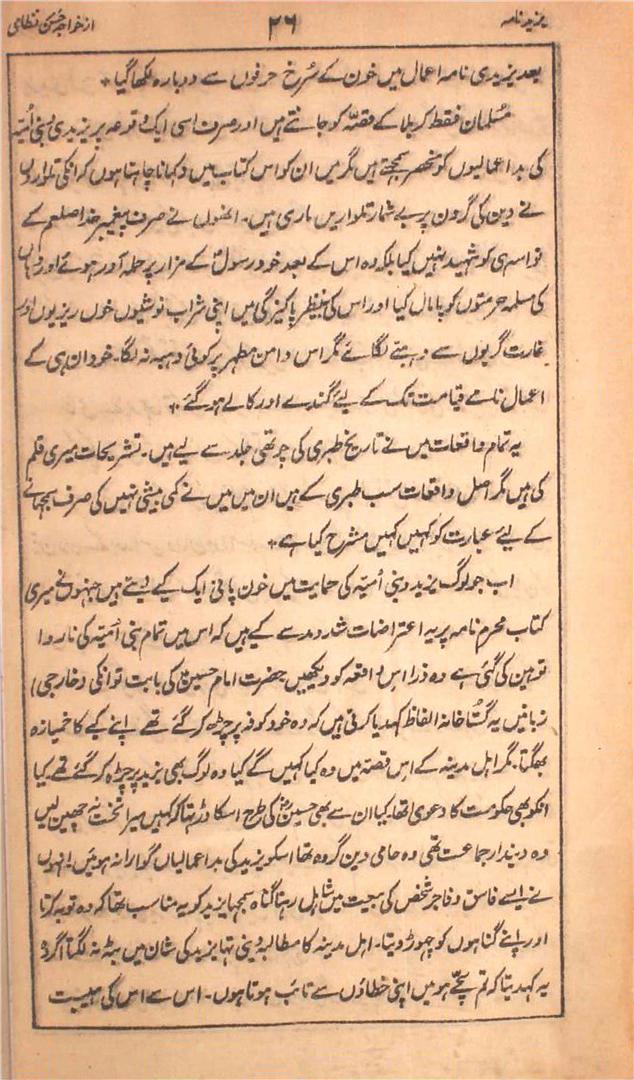 یزید نامہ ۲۶ از خواجہ حسن نظامی
بعد یزیدی نامہ اعمال میں خون کے سُرخ حرفوں سے دوبارہ لکھا گیا ٭
مُسلمان فقط کربلا کے قصّہ کو جانتے ہیں اور صرف اسی ایک وقوعہ پر یزیدی و بنی اُمیّہ
کی بداعمالیوں کو منحصر سمجھتے ہیں مگر میں ان کو اس کتاب میں دکہانا چاہتا ہوں کہ انکی تلواروں
نے دین کی گردن پر بے شمار تلواریں ماری ہیں۔ انھوں نے صرف پیغمبر خدا صلعم کے
نواسہ ہی کو شہید نہیں کیا بلکہ وہ اس کے بعد خود رسولؐ کے مزار پر حملہ آور ہوئے اور وہاں
کی مسلمہ حرمتوں کو پامال کیا اور اس کی بینظیر پاکیزگی میں اپنی شراب نوشیوں خوں ریزیوں اور
غارت گریوں سے دہبّے لگائے مگر اس دامن مطہر پر کوئی دہبہ نہ لگا۔ خود ان ہی کے
اعمال نامے قیامت تک کے لیے گندے اور کالے ہو گئے ٭
یہ تمام واقعات میں نے تاریخ طبری کی چوتھی جلد سے لیے ہیں۔ تشریحات میری قلم
کی ہیں مگر اصل واقعات سب طبری کے ہیں ان میں میں نے کمی بیشی نہیں کی صرف سمجہانے
کے لیے عبارت کو کہیں کہیں مشرح کیا ہے ٭
اب جو لوگ یزید و بنی اُمیّہ کی حمایت میں خون پانی ایک کیے دیتے ہیں جنہوں نے میری
کتاب محرم نامہ پر یہ اعتراضات شد و مد سے کیے ہیں کہ اس میں تمام بنی اُمیّہ کی ناروا
توہین کی گئی ہے وہ ذرا اِس واقعہ کو دیکھیں حضرت امام حسینؑ کی بابت تو انکی (خارجی)
زبانیں یہ گستاخانہ الفاظ کہدیا کرتی ہیں کہ وہ خود کوفہ پر چڑھ کر گئے تھے اپنے کیے کا خمیازہ
بھگتا۔ مگر اہل مدینہ کے اِس قصّہ میں وہ کیا کہیں گے کیا وہ لوگ بھی یزید پر چڑہ کر گئے تھے۔ کیا
انکو بھی حکومت کا دعوی تھا۔ کیا ان سے بھی حسینؑ کی طرح اسکا ڈر تہا کہ کہیں میرا تخت نہ چھین لیں
وہ دیندار جماعت تھی وہ حامی دین گروہ تھا اسکو یزید کی بداعمالیاں گوارا نہ ہوئیں۔ انہوں
نے ایسے فاسق و فاجر شخص کی بیعت میں شامل رہنا گناہ سمجہا یزید کو یہ مناسب تھا کہ وہ توبہ کرتا
اور اپنے گناہوں کو چہوڑ دیتا۔ اہل مدینہ کا مطالبہ دینی تہا یزید کی شان میں بٹہ نہ لگتا اگر وہ
یہ کہدیتا کہ تم سچّے ہو میں اپنی خطاؤں سے تائب ہوتا ہوں۔ اس سے اس کی ہیبت